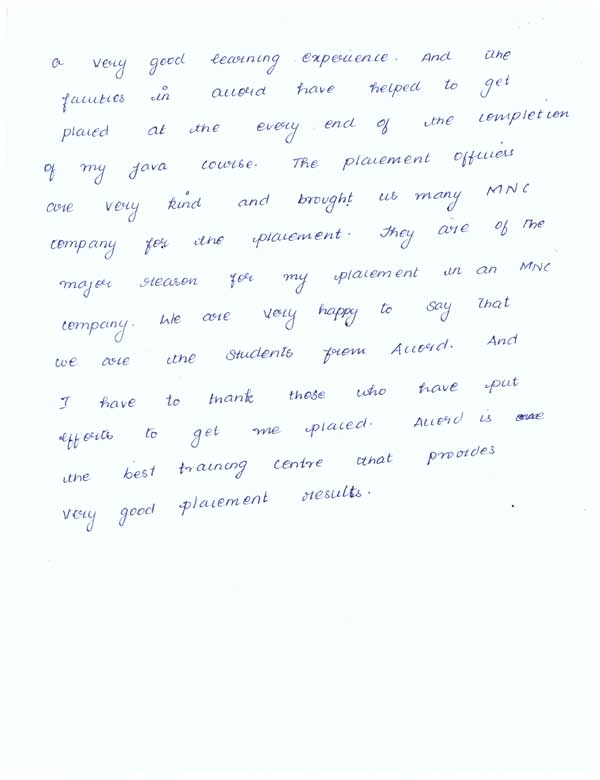 a very good learning experience. And the
faculties in accord have helped to get
placed at the every end of the completion
of my java course. The placement officers
are very kind and brought us many MNC
company for the placement. They are of the
major reason for my placement in an MNC
company. We are very happy to say that
we are the students from Accord. And
I have to thank those who have put
efforts to get me placed. Accord is
the best training centre that provides
very good placement results.